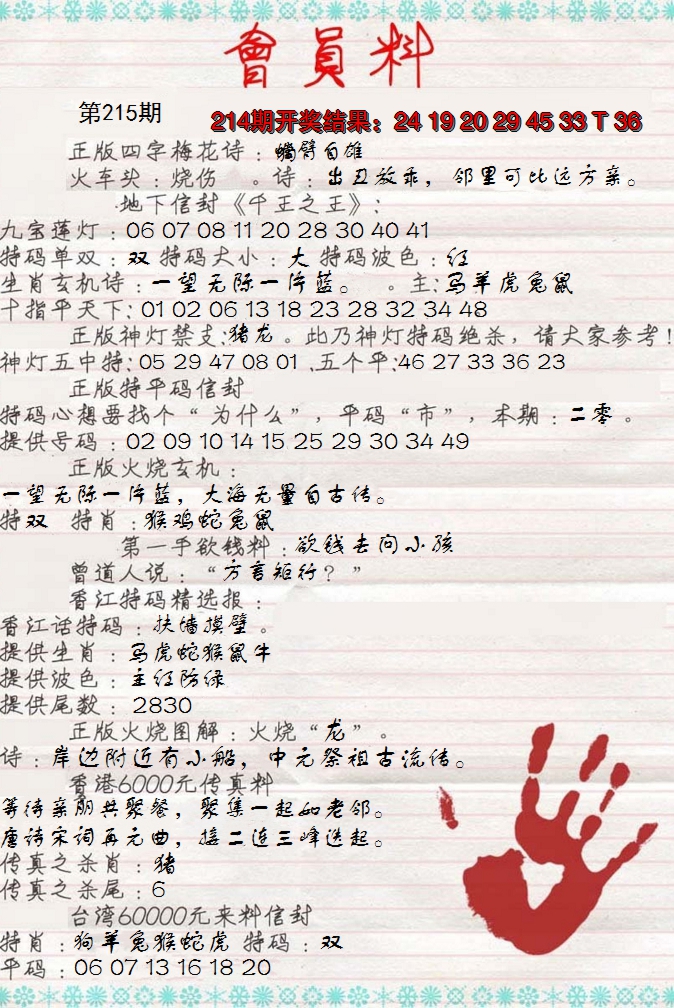 會員料
第215期
214期开奖结果：24 19 20 29 45 33 T 36
正版四字梅花诗：螗臂自雄
火车头：烧伤 。诗：出丑放乖，邻里可比远方亲。
地下信封《千王之王》：
九宝莲灯：06 07 08 11 20 28 30 40 41
特码单双：双 特码大小：大 特码波色：红
生肖玄机诗：一望无际一片蓝。 。主：马羊虎兔鼠
十指平天下：01 02 06 13 18 23 28 32 34 48
正版神灯禁支：猪龙。此乃神灯特码绝杀，请大家参考！
神灯五中特：05 29 47 08 01 .五个平：46 27 33 36 23
正版特平码信封
特码心想要找个“为什么”，平码“市”，本期：二零。
提供号码：02 09 10 14 15 25 29 30 34 49
正版火烧玄机：
一望无际一片蓝，大海无量自古传。
特双 特肖：猴鸡蛇兔鼠
第一手欲钱料：欲钱去问小孩
曾道人说：“方言矩行？”
香江特码精选报：
香江话特码：扶墙摸壁。
提供生肖：马虎蛇猴鼠牛
提供波色：主红防绿
提供尾数：2830
正版火烧图解：火烧“龙”。
诗：岸边附近有小船，中元祭祖古流传。
香港6000元传真料
等待亲朋共聚餐，聚集一起如老邻。
唐诗宋词再元曲，接二连三峰迭起。
传真之杀肖：猪
传真之杀尾：6
台湾60000元来料信封
特肖：狗羊兔猴蛇虎 特码：双
平码：06 07 13 16 18 20